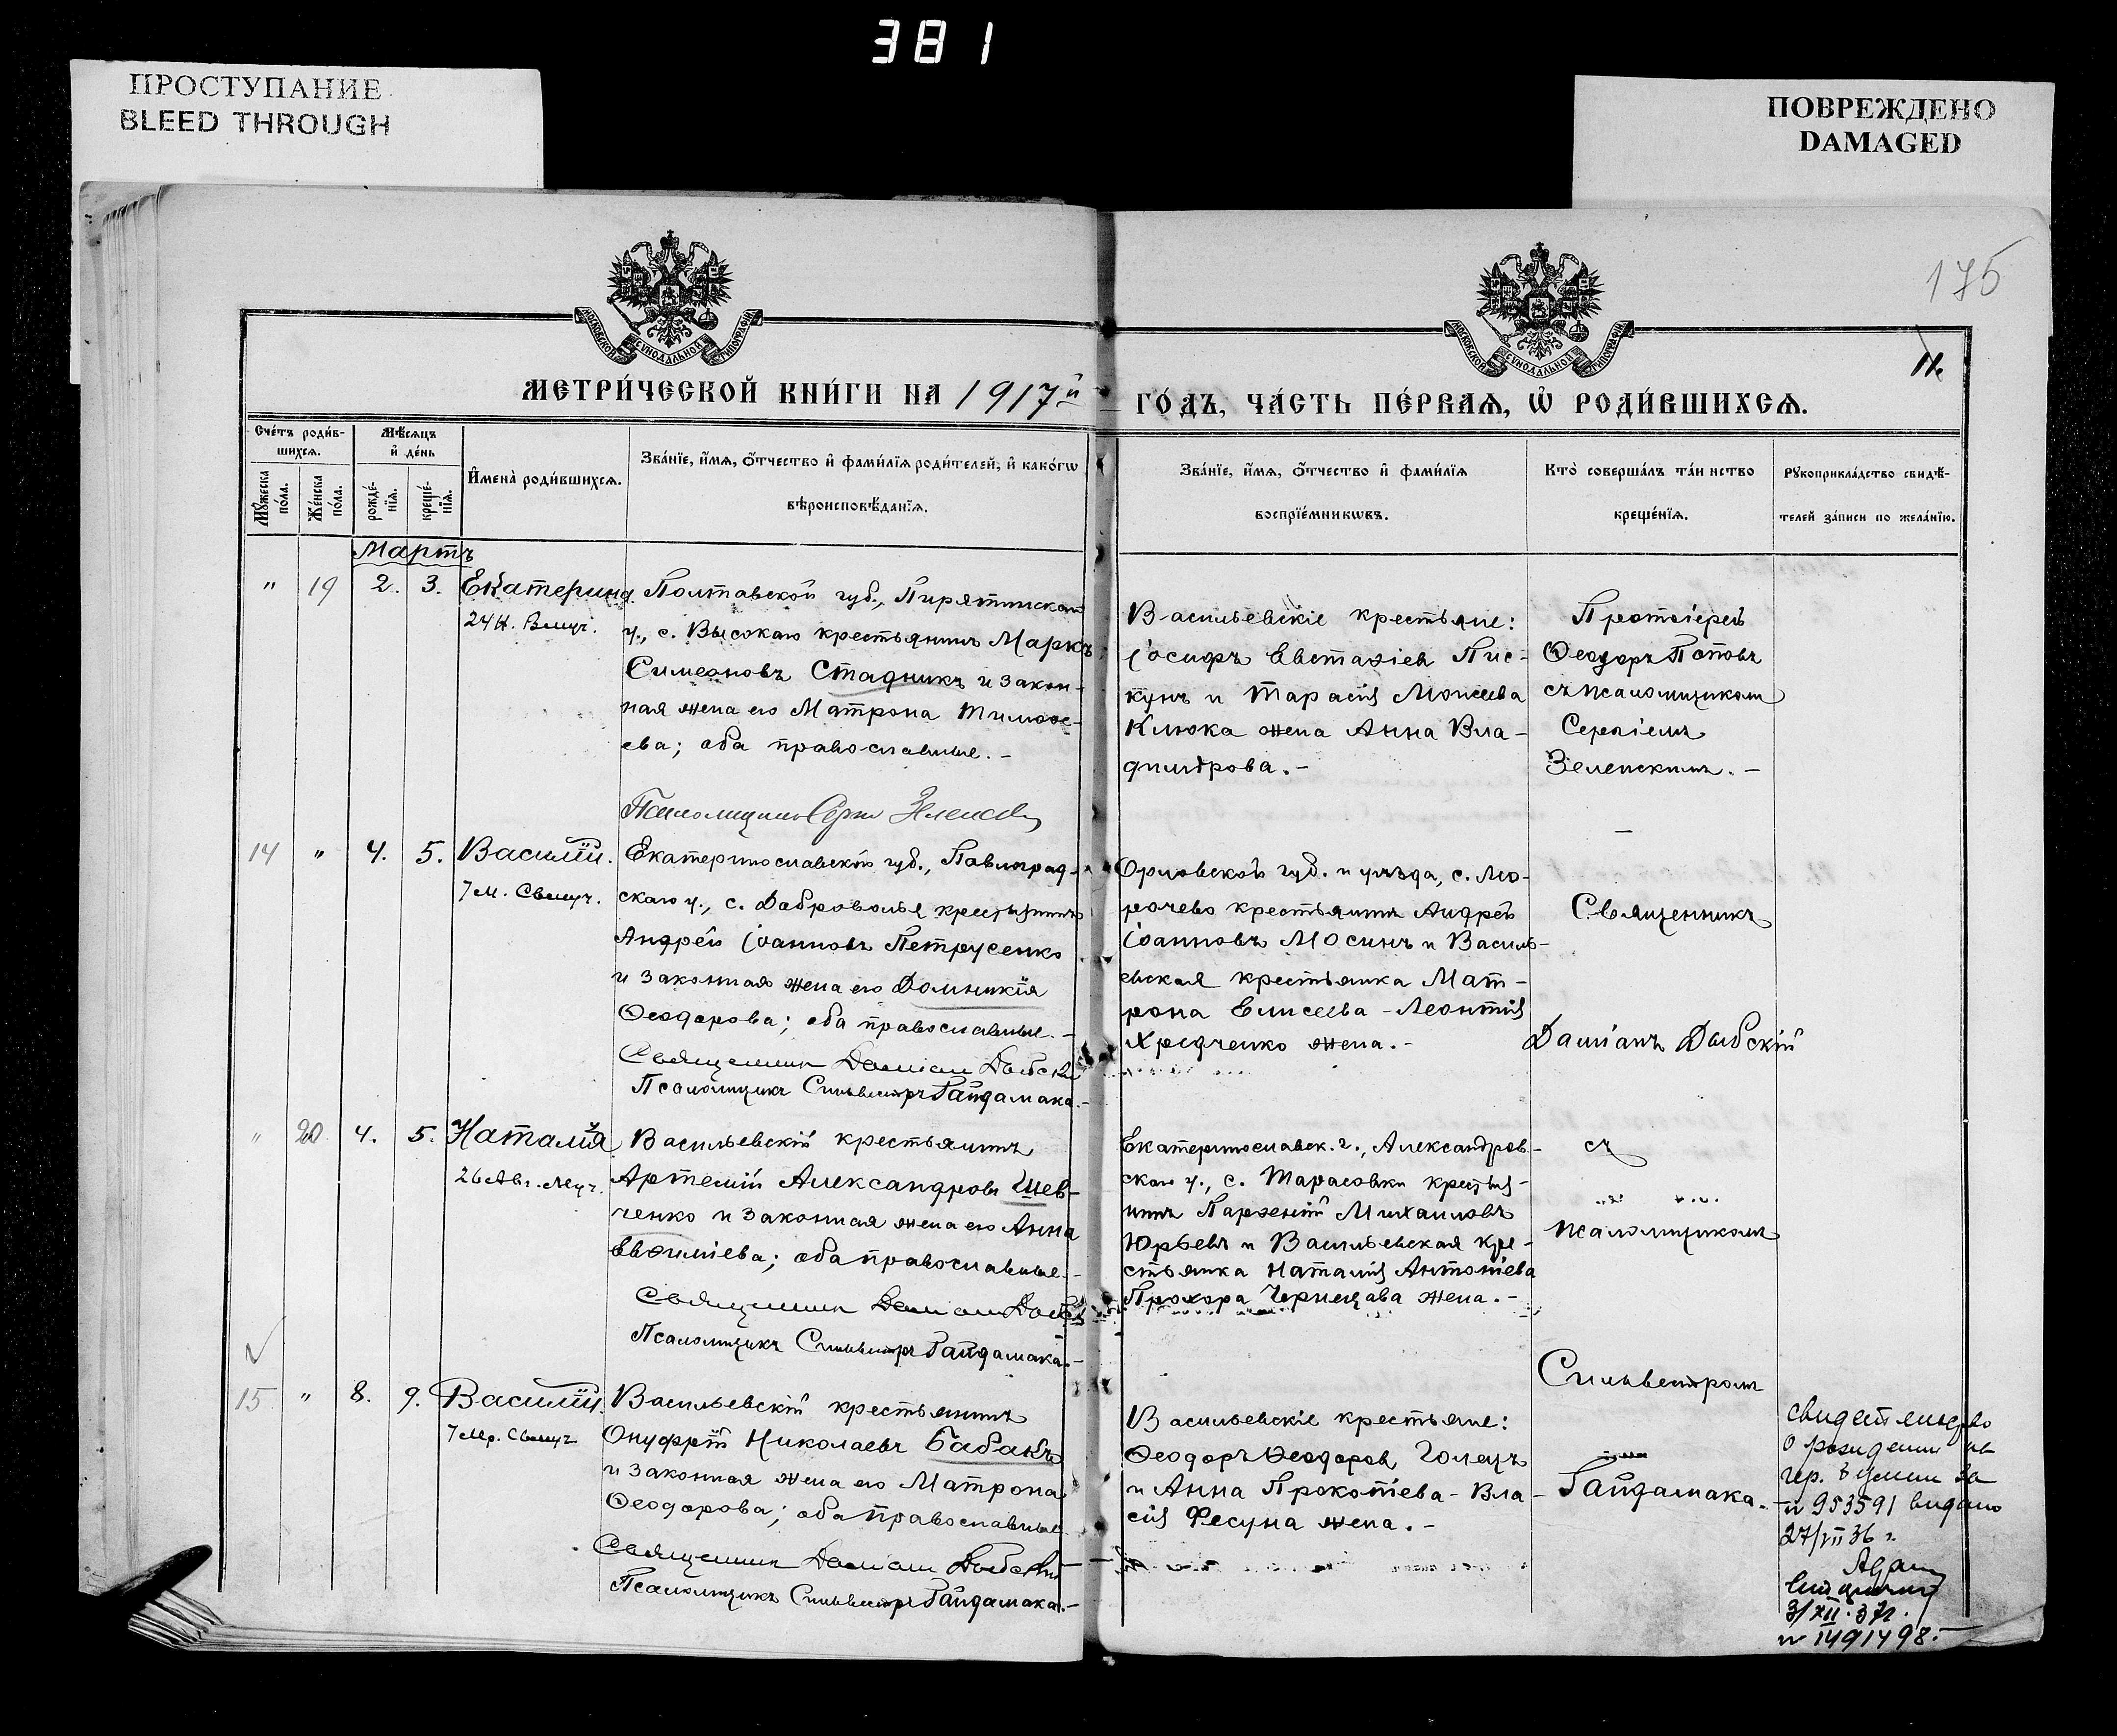 381
ПРОСТУПАНИЕ
BLEED THROUGH
ПОВРЕЖДЕНО
DAMAGED
175
11.
МОСКОВСКОЙ СѴНОДАЛЬНОЙ ТИПОГРАФІИ
МОСКОВСКОЙ СѴНОДАЛЬНОЙ ТИПОГРАФІИ
МЕТРИ́ЧЕСКОЙ КНИ́ГИ НА 1917й
ГО́ДЪ, ЧА́СТЬ ПЕ́РВАѦ, Ѡ҆ РОДИ́ВШИХСѦ.
Сче́тъ роди́в-
шихсѧ.
Мꙋ́жеска по́ла.
Же́нска по́ла.
Мѣ́сѧцъ
и҆ де́нь
рожде́-
нїѧ.
креще́-
нїѧ.
И҆мена̀ роди́вшихсѧ.
Зва́нїе, и҆́мѧ, ѻ҆́тчество и҆ фами́лїѧ роди́телей, и҆ како́гѡ
вѣроисповѣ́данїѧ.
Зва́нїе, и҆́мѧ, ѻ҆́тчество и҆ фами́лїѧ
воспрїе́мникѡвъ.
Кто̀ соверша́лъ та́инство
креще́нїѧ.
Рꙋкоприкла́дство свидѣ́-
телей за́писи по жела́нїю.
Мартъ
" 19 2. 3. Екатерина
24 Н. Вмуч.
Полтавской губ., Пирятинскаго
у., с. Высокаго крестьянинъ Маркъ
Симеоновъ Стадникъ и закон-
ная жена его Матрона Тимоѳе-
ева; оба православные. -
Псаломщикъ Сергій Зеленскій
Васильевскіе крестьяне:
Іосифъ Евстаѳіевъ Пис-
кунъ и Тарасія Моисеева
Клюка жена Анна Вла-
димірова. -
Протоіерей
Ѳеодоръ Поповъ
съ псаломщикомъ
Сергіемъ
Зеленскимъ. -
14 " 4. 5. Василій.
7 М. Свмуч.
Екатеринославской губ., Павлоград-
скаго у., с. Доброволья крестьянинъ
Андрей Іоанновъ Петрусенко
и законная жена его Домникія
Ѳеодорова; оба православные. -
Священникъ Даміанъ Дыбскій
Псаломщикъ Сильвестръ Гайдамака. -
Орловской губ. и уѣзда, с. Мо-
рочево крестьянинъ Андрей
Іоанновъ Мосинъ и Василь-
евская крестьянка Мат-
рона Елисеева - Леонтія
Хредченко жена. -
Священникъ
Даміанъ Дыбскій
" 20 4. 5. Наталія
26 Авг. Муч.
Васильевскій крестьянинъ
Артемій Александровъ Шев-
ченко и законная жена его Анна
Евѳиміева; оба православные. -
Священникъ Даміанъ Дыбскій
Псаломщикъ Сильвестръ Гайдамака. -
Екатеринославск. г., Александров-
скаго у., с. Тарасовки крестья-
нинъ Парѳеній Михаиловъ
Юрьевъ и Васильевская кре-
стьянка Наталія Антоніева
Прохора Чернецава жена. -
съ
псаломщикомъ
15 " 8. 9. Василій.
7 Мр. Свмуч
Васильевскій крестьянинъ
Онуфрій Николаевъ Бабакъ
и законная жена его Матрона
Ѳеодорова; оба православные
Священникъ Даміанъ Дыбскій
Псаломщикъ Сильвестръ Гайдамака. -
Васильевскіе крестьяне:
Ѳеодоръ Ѳеодоровъ Голецъ
и Анна Прокопіева - Вла-
сія Фесуна жена. -
Сильвестромъ
Гайдамака. -
свидетельство
о рождении
за
№ 953591 видано
27/VII 36 г.
3/XII. 37г.
№ 1491498. -